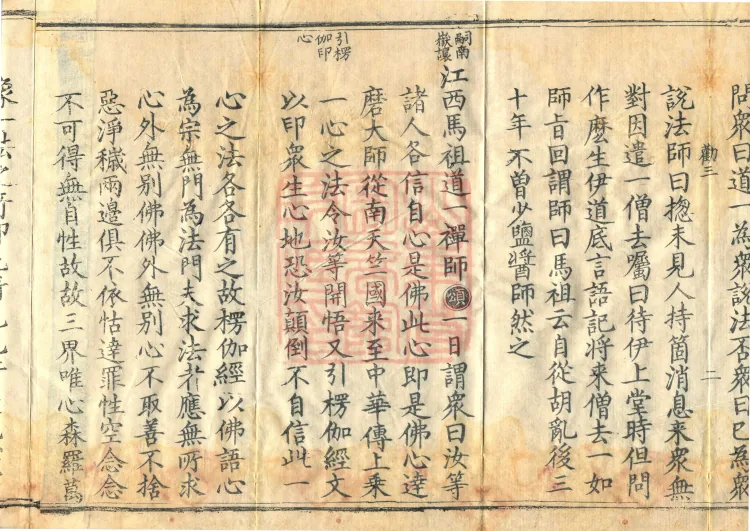 問衆曰道一為衆說法否衆曰已為衆
勸三
二
說法師曰揔未見人持箇消息来衆無
對因遣一僧去囑曰待伊上堂時但問
作麽生伊道底言語記将来僧去一如
師旨回謂師曰馬祖云自從胡亂後三
十年不曽少鹽醬師然之
嗣南
嶽讓
江西馬祖道一禪師頌一日謂衆曰汝等
諸人各信自心是佛此心即是佛心達
磨大師從南天竺國来至中華傳上乗
引楞
伽印
心
一心之法令汝等開悟又引楞伽經文
以印衆生心地恐汝顛倒不自信此一
心之法各各有之故楞伽經以佛語心
為宗無門為法門夫求法者應無所求
心外無别佛佛外無别心不取善不捨
惡淨穢兩邊俱不依怙達罪性空念念
不可得無自性故故三界唯心森羅萬